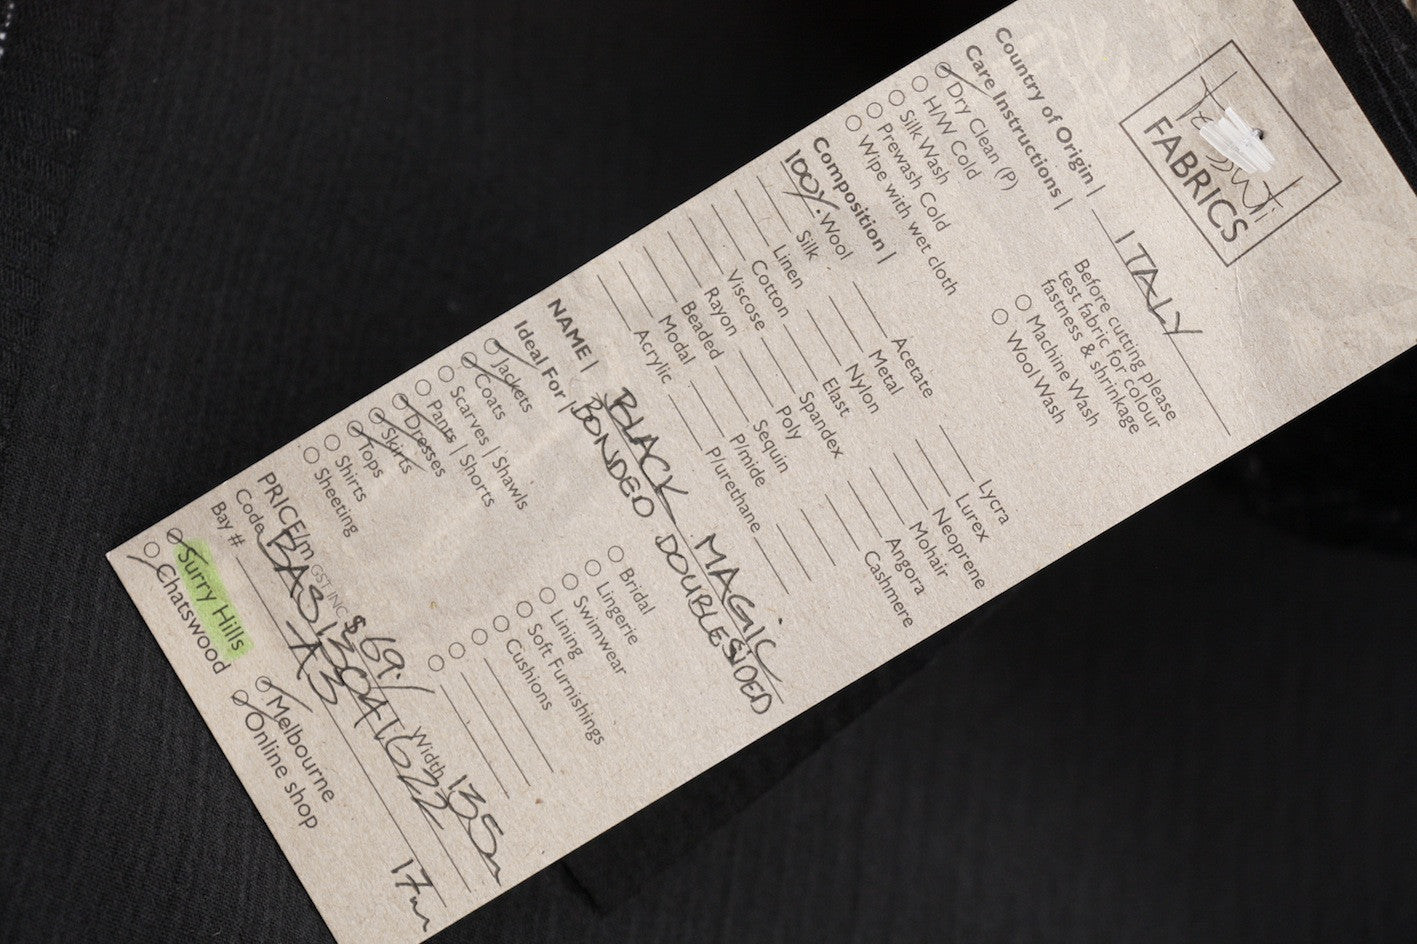 FABRICS
Country of Origin | ITALY
Care Instructions |
Dry Clean (P)
H/W Cold
Silk Wash
Prewash Cold
Wipe with wet cloth
Before cutting please
test fabric for colour
fastness & shrinkage
Machine Wash
Wool Wash
Composition |
100% Wool
Silk
Linen
Cotton
Viscose
Rayon
Beaded
Modal
Acrylic
Acetate
Metal
Nylon
Elast
Spandex
Poly
Sequin
P/mide
P/urethane
Lycra
Lurex
Neoprene
Mohair
Angora
Cashmere
NAME | BLACK MAGIC
BONDED DOUBLESIDED
Ideal For |
Jackets
Coats
Scarves | Shawls
Pants | Shorts
Dresses
Skirts
Tops
Shirts
Sheeting
Bridal
Lingerie
Swimwear
Lining
Soft Furnishings
Cushions
PRICE/m GST INC $69./ Width 135m
Code BAS13041622
Bay # A3 17m
Surry Hills
Chatswood
Melbourne
Online shop